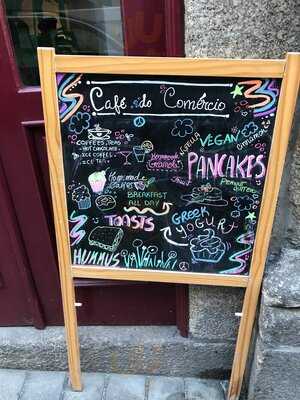 Café do Comércio
COFFEES, TEAS
HOT CHOCOLATE
ICE COFFEE
ICE TEA
Homemade
Granola
Nutella
VEGAN
Cinnamon
PANCAKES
Peanut
Butter
Homemade
Cakes
BREAKFAST
ALL DAY
TOASTS
GREEK
YOGURT
HUMMUS